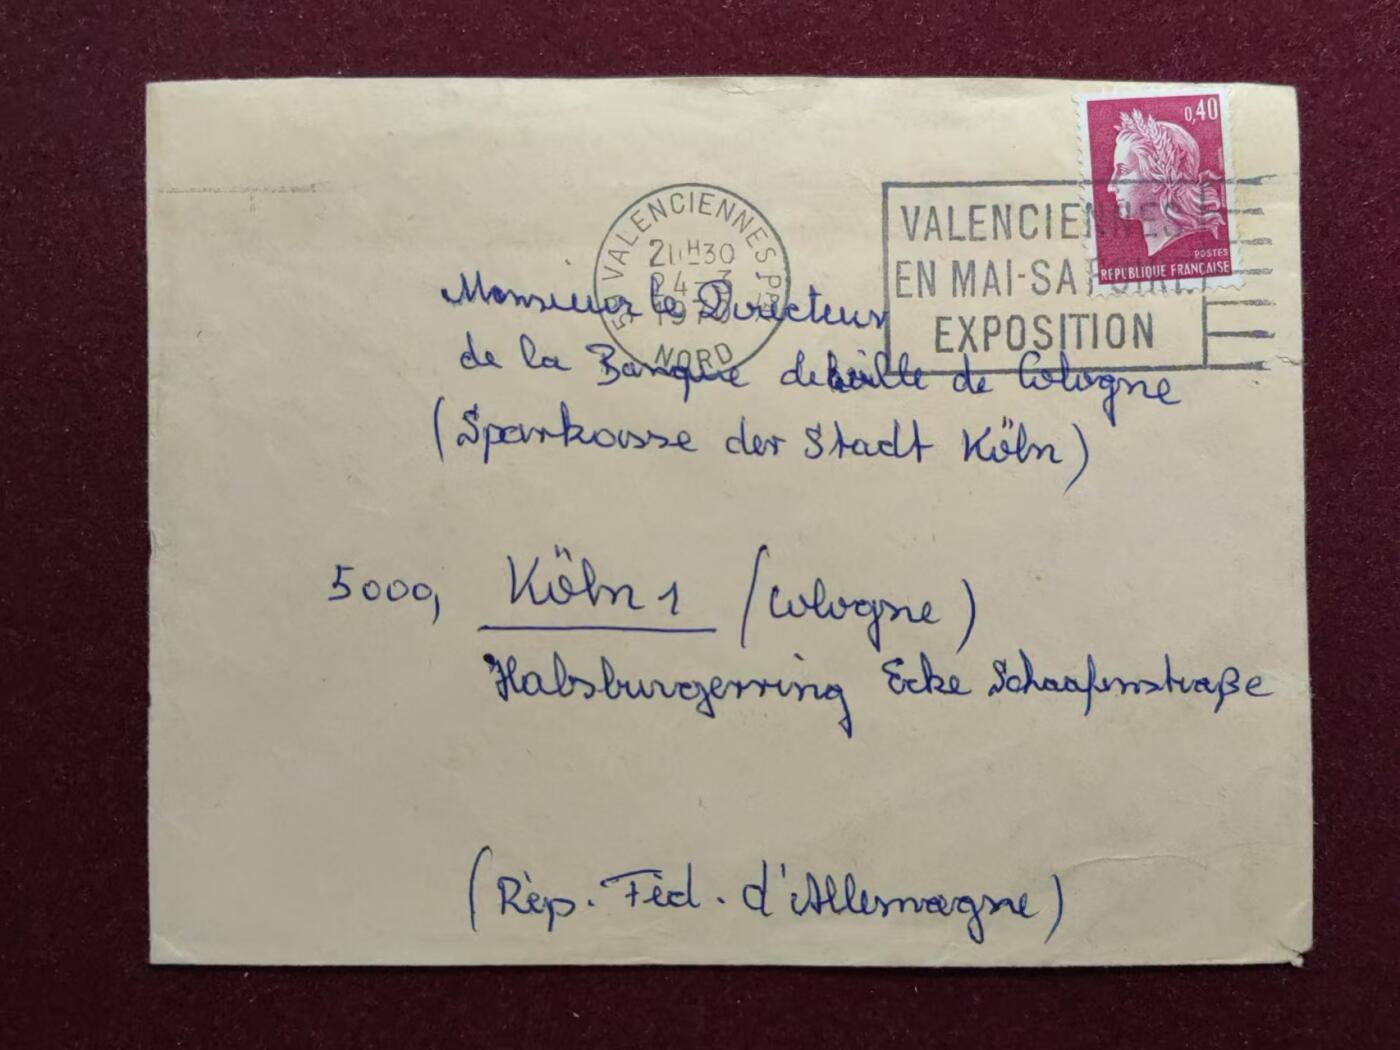 0,40
POSTES
REPUBLIQUE FRANÇAISE
59 VALENCIENNES PPAL
21H30
24-3
NORD
VALENCIENNES
EN MAI-SA FOIRE
EXPOSITION
Monsieur le Directeur
de la Banque de ville de Cologne
(Sparkasse der Stadt Köln)
5000, Köln 1 (Cologne)
Habsburgerring Ecke Schaafenstraße
(Rép. Féd. d'Allemagne)